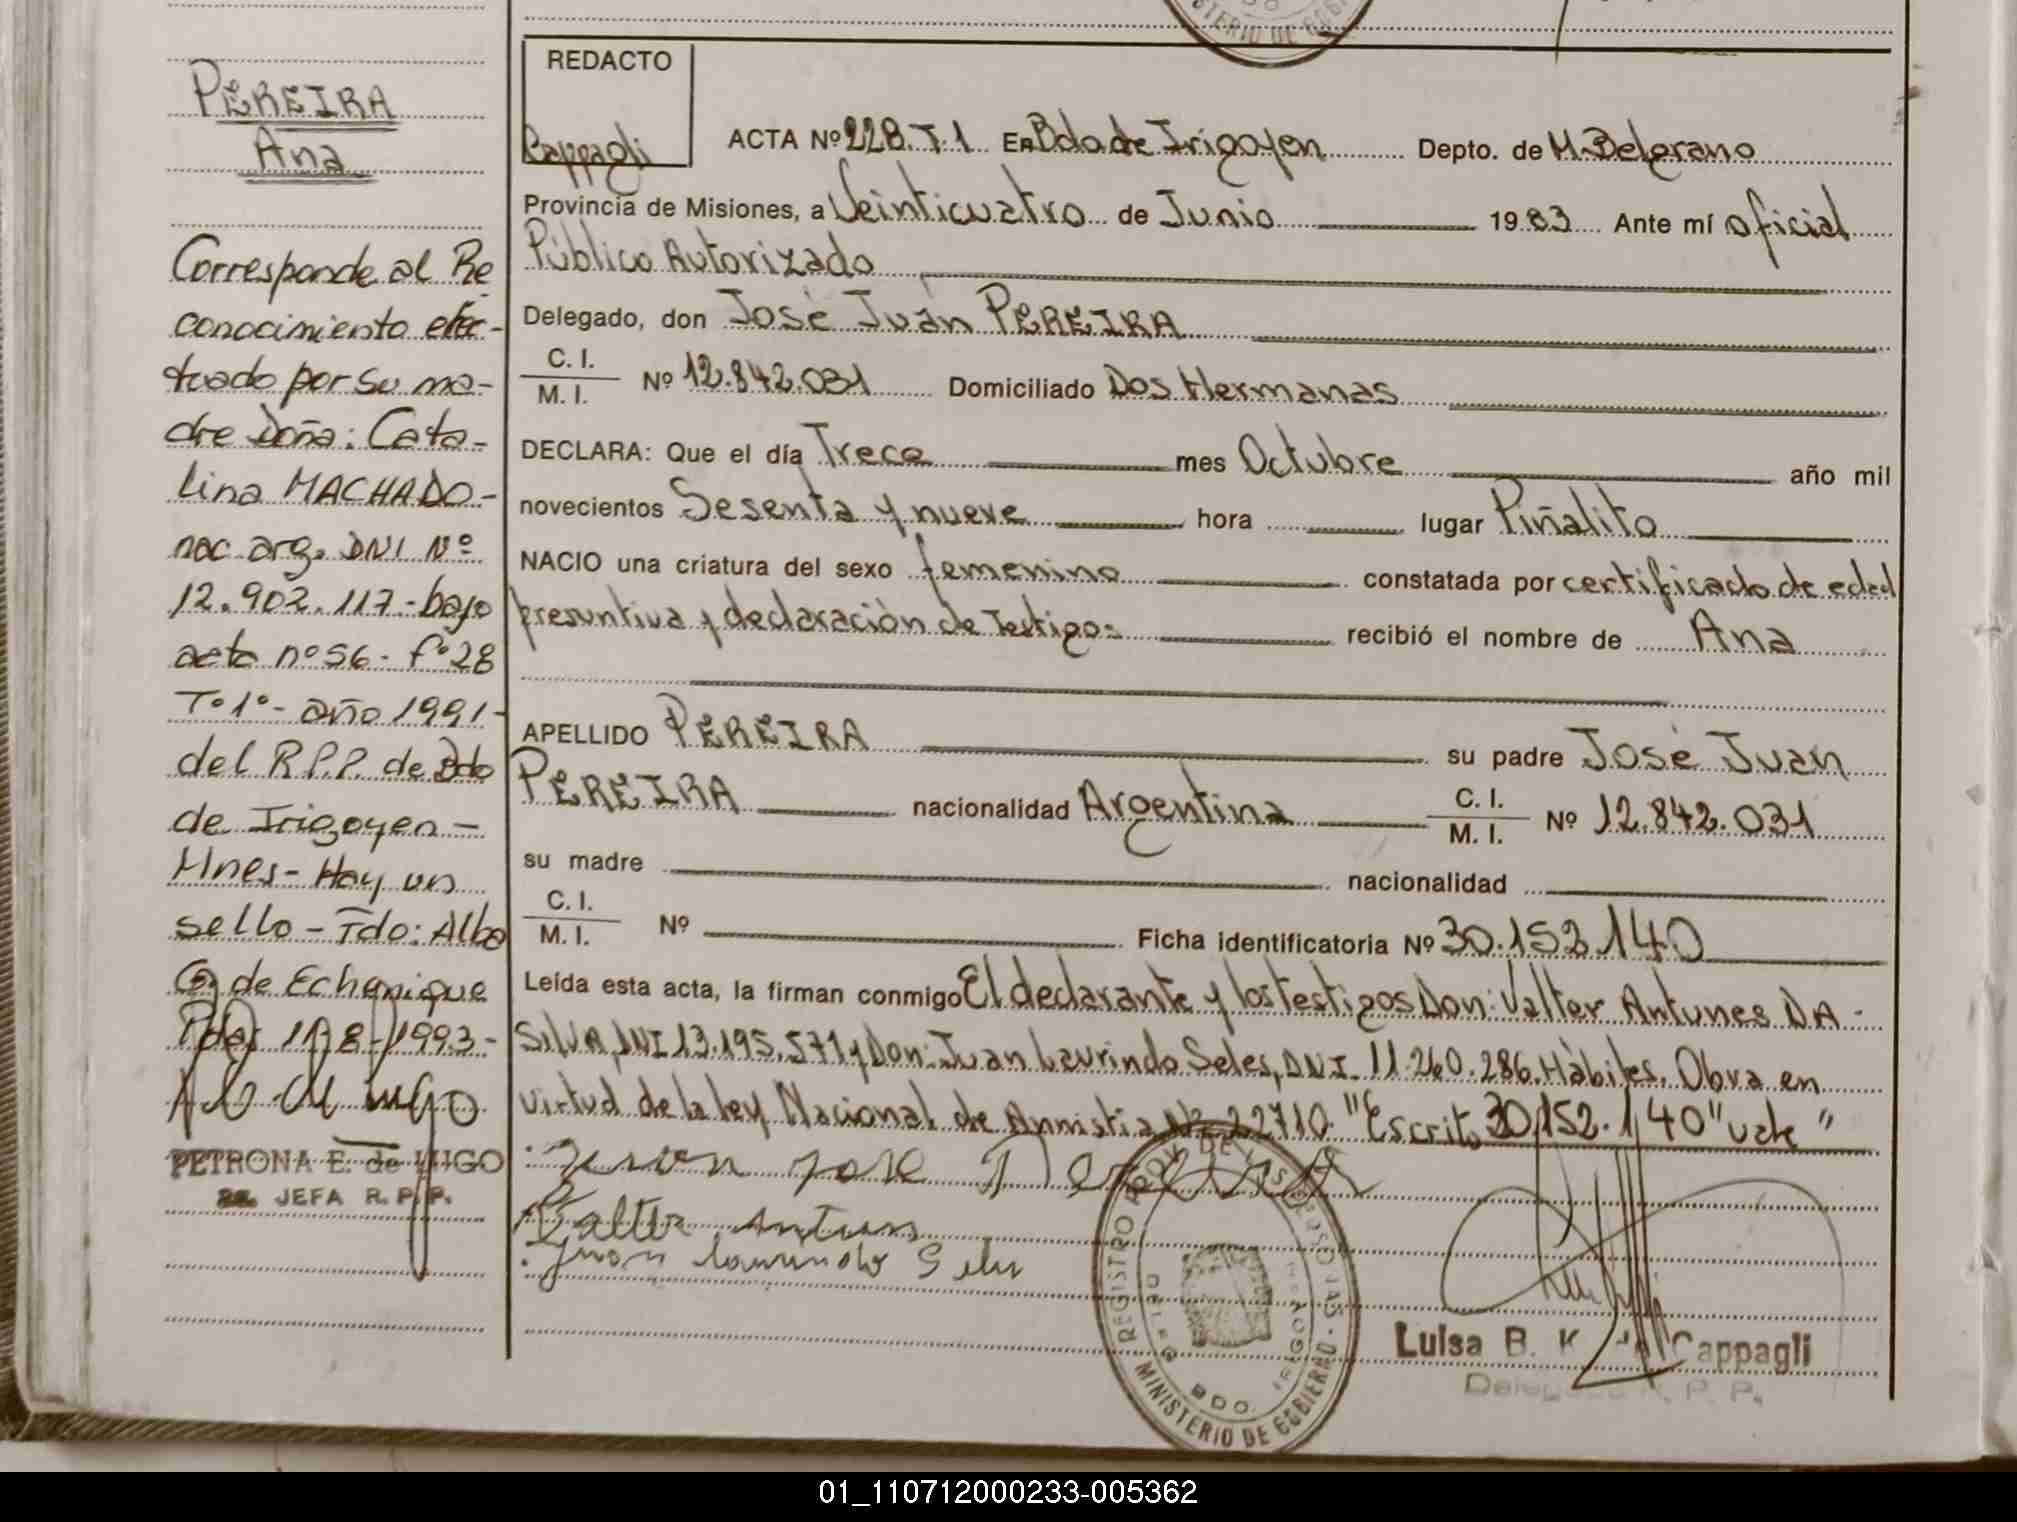 PEREIRA
Ana
Corresponde al Re
conocimiento efec-
tuado por su ma-
dre Doña: Cata-
lina MACHADO-
nac. arg. DNI Nº
12.902.117-bajo
acta nº 56- fº 28
Tº 1º- año 1991-
del R.P.P. de Bdo
de Irigoyen-
Mnes- Hay un
sello- Fdo: Alba
G. de Echenique
Pdas 11-8-1993-
PETRONA E. de LUGO
JEFA R. P. P.
REDACTO
Cappagli
ACTA Nº 228. T. 1 En Bdo de Irigoyen Depto. de M. Belgrano
Provincia de Misiones, a Veinticuatro de Junio 1983 Ante mí oficial
Público Autorizado
Delegado, don José Juan PEREIRA
C. I.
M. I. Nº 12.842.031 Domiciliado Dos Hermanas
DECLARA: Que el día Trece mes Octubre año mil
novecientos Sesenta y nueve hora lugar Piñalito
NACIO una criatura del sexo femenino constatada por certificado de edad
presuntiva y declaración de Testigos recibió el nombre de Ana
APELLIDO PEREIRA su padre José Juan
PEREIRA nacionalidad Argentina C. I. M. I. Nº 12.842.031
su madre nacionalidad
C. I.
M. I. Nº Ficha identificatoria Nº 30.152.140
Leída esta acta, la firman conmigo El declarante y los Testigos Don: Valter Antunes DA-
SILVA, DNI 13.195.571 y Don: Juan Laurindo Seles, DNI. 11.260.286. Hábiles. Obra en
virtud de la ley Nacional de Amnistia Nº 22710. "Escrito 30.152.140" vale"
Juan Jose Pereira
Valter Antunes
Juan Laurindo Seles
REGISTRO PROV. DE LAS PERSONAS
MINISTERIO DE GOBIERNO
BDO. IRIGOYEN
Luisa B. K. de Cappagli
Delegada R. P. P.
01_110712000233-005362